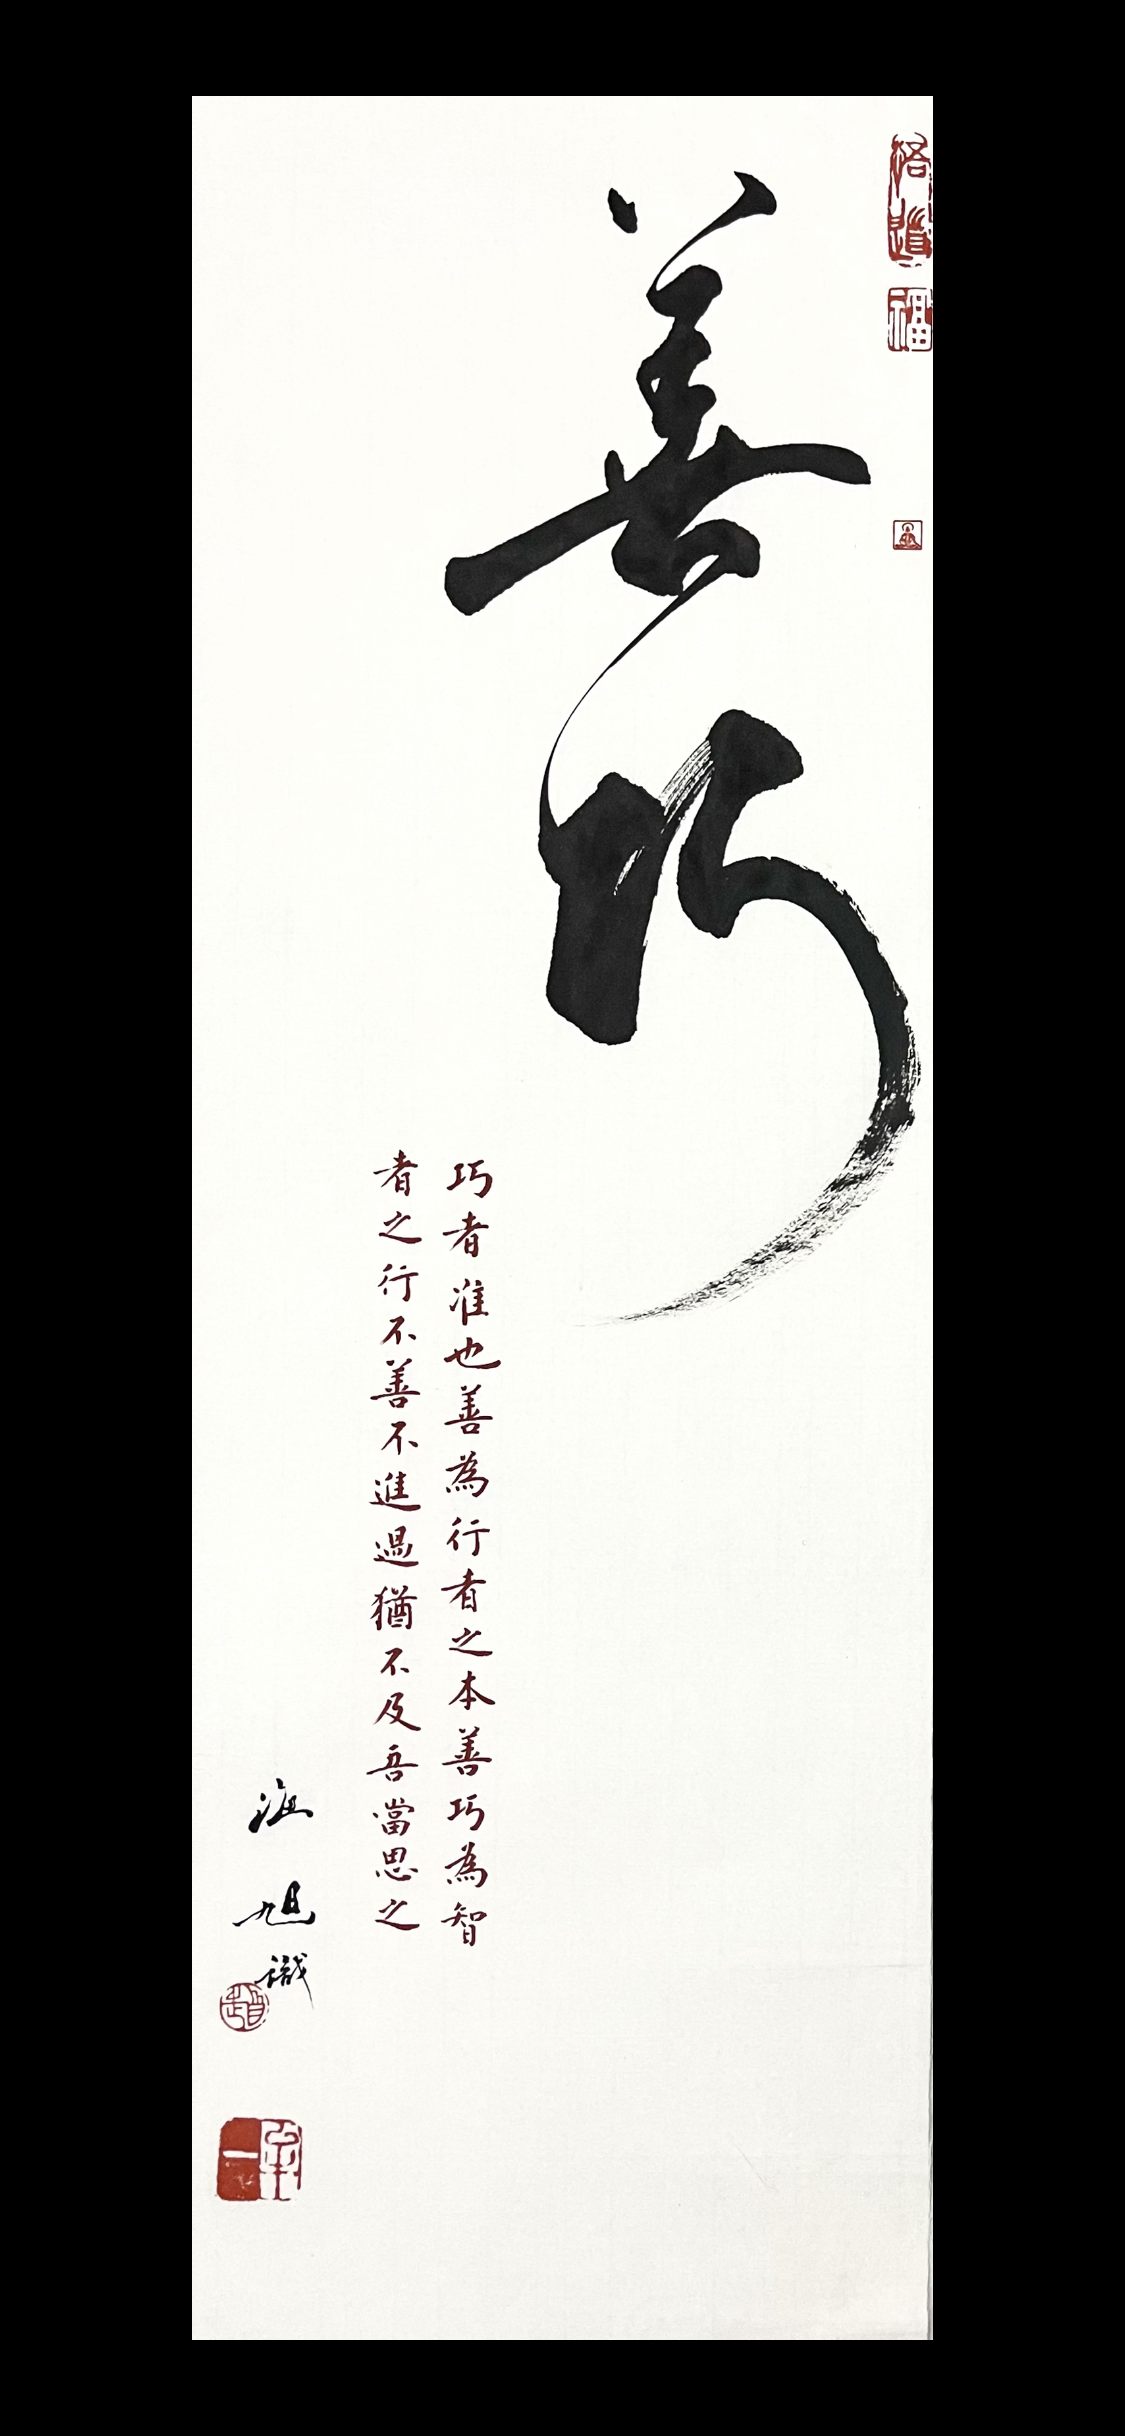 善巧
巧者准也善為行者之本善巧為智
者之行不善不進過猶不及吾當思之
旭識
福